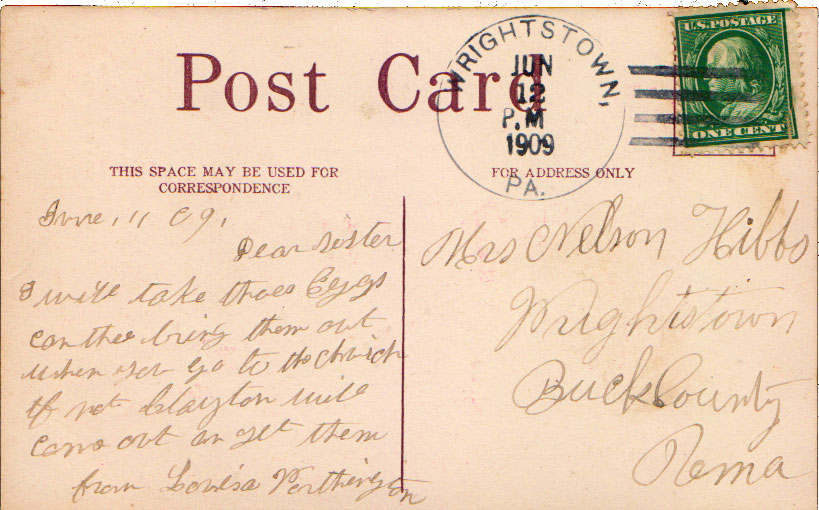 Post Card
WRIGHTSTOWN,
JUN
12
P.M
1909
PA.
U.S. POSTAGE
ONE CENT
THIS SPACE MAY BE USED FOR
CORRESPONDENCE
FOR ADDRESS ONLY
June, 11 09,
Dear sister
I will take thoes Eggs
can thee bring them out
when you go to the Church
if not Clayton will
come out an get them
from Louisa Worthington
Mrs Nelson Hibbs
Wrightstown
Buck County
Penna